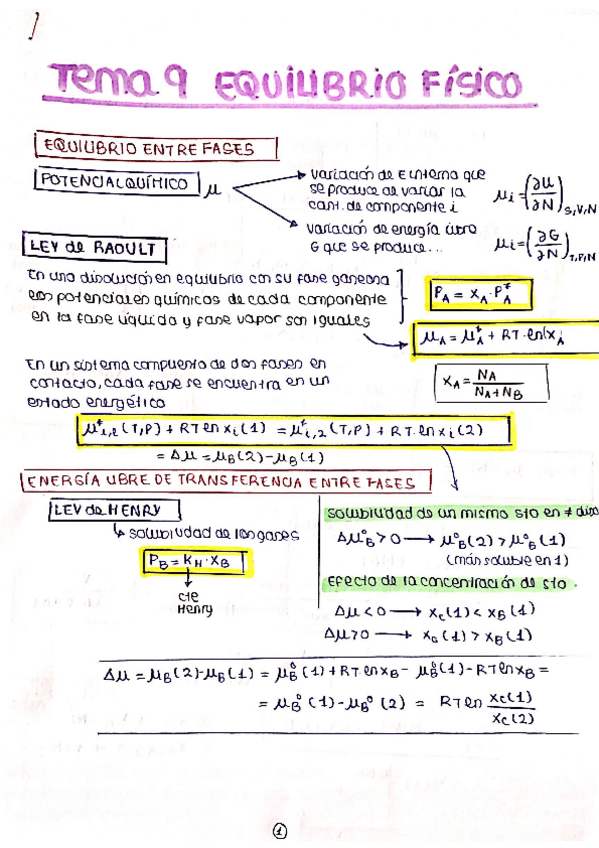 Tema 9 EQUILIBRIO FÍSICO
EQUILIBRIO ENTRE FASES
POTENCIAL QUÍMICO μ
variación de E interna que
se produce al variar la
cant. de componente i
μi = (∂U/∂N)S,V,N
variación de energía libre
G que se produce...
μi = (∂G/∂N)T,P,N
LEY de RAOULT
En una disolución en equilibrio con su fase gaseosa
los potenciales químicos de cada componente
en la fase líquida y fase vapor son iguales
PA = XA · PA*
μA = μA* + RT · ln XA
XA = NA / NA + NB
En un sistema compuesto de dos fases en
contacto, cada fase se encuentra en un
estado energético
μ*i,1 (T,P) + RT ln xi (1) = μ*i,2 (T,P) + RT. ln xi (2)
= Δμ = μB(2) - μB(1)
ENERGÍA LIBRE DE TRANSFERENCIA ENTRE FASES
LEY de HENRY
↳ solubilidad de los gases
PB = KH · XB
cte
Henry
solubilidad de un mismo sto en ≠ diso
Δμ°B > 0 → μ°B (2) > μ°B (1)
(más soluble en 1)
Efecto de la concentración de sto.
Δμ < 0 → xc (1) < xB (1)
Δμ > 0 → (1) > xB (1)
Δμ = μB(2) - μB(1) = μB° (1) + RT ln xB - μB°(1) - RT ln xB =
= μB° (1) - μB° (2) = RT ln xc(1) / xc(2)
1